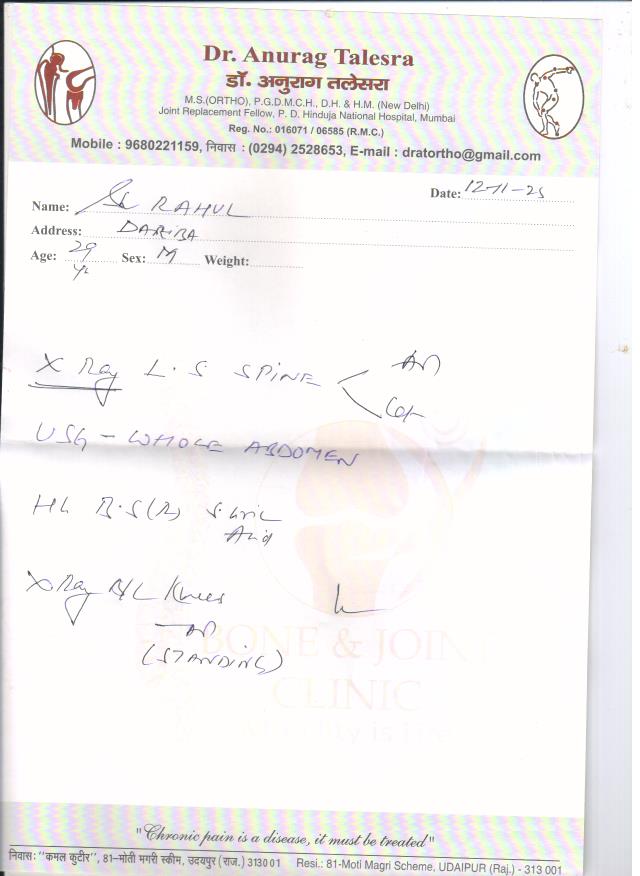 Dr. Anurag Talesra
डॉ. अनुराग तलेसरा
M.S.(ORTHO), P.G.D.M.C.H., D.H. & H.M. (New Delhi)
Joint Replacement Fellow, P. D. Hinduja National Hospital, Mumbai
Reg. No.: 016071 / 06585 (R.M.C.)
Mobile : 9680221159, निवास : (0294) 2528653, E-mail : dratortho@gmail.com
Date: 12-11-25
Name: RAHUL
Address: DARIBA
Age: 29 Sex: M Weight:
X Ray L.S SPINE
USG - WHOLE ABDOMEN
B.S(R) S. Uric
Acid
X Ray B/L Knees
AP
(STANDING)
BONE & JOINT
CLINIC
"Chronic pain is a disease, it must be treated"
निवास: "कमल कुटीर", 81-मोती मगरी स्कीम, उदयपुर (राज.) 313001 Resi.: 81-Moti Magri Scheme, UDAIPUR (Raj.) - 313 001